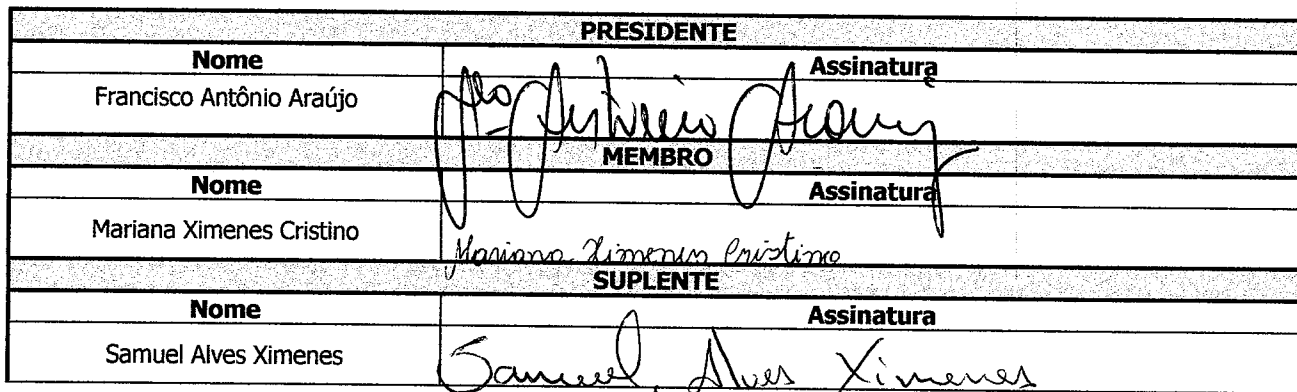 PRESIDENTE
Nome Assinatura
Francisco Antônio Araújo Fco Antônio Araújo
MEMBRO
Nome Assinatura
Mariana Ximenes Cristino Mariana Ximenes Cristino
SUPLENTE
Nome Assinatura
Samuel Alves Ximenes Samuel Alves Ximenes